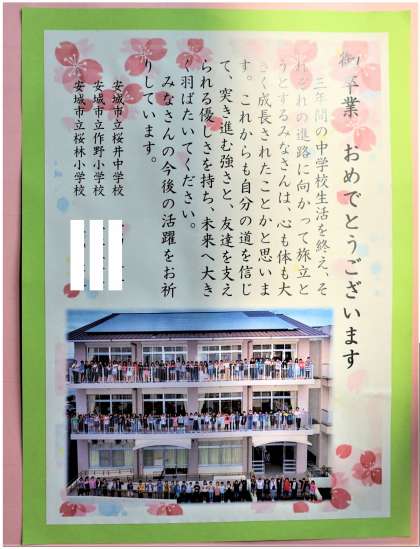 御卒業 おめでとうございます
三年間の中学校生活を終え、そ
れぞれの進路に向かって旅立と
うとするみなさんは、心も体も大
きく成長されたことかと思いま
す。これからも自分の道を信じ
て、突き進む強さと、友達を支え
られる優しさを持ち、未来へ大き
く羽ばたいてください。
みなさんの今後の活躍をお祈
りしています。
安城市立桜井中学校
安城市立作野小学校
安城市立桜林小学校